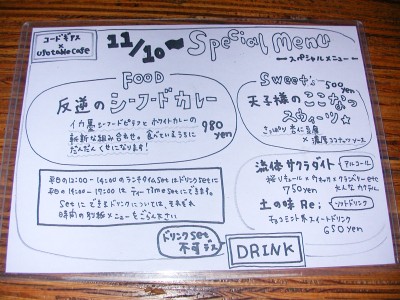 コードギアス
×
usotoble cafe
11/10〜 Special Menu
〜スペシャルメニュー〜
FOOD
反逆のシーフードカレー
イカ墨シーフードピラフとホワイトカレーの
斬新な組み合わせ。食べているうちに
だんだんくせになります!
980 yen
Sweets
500yen
天子様のここなっ
スウィーツ☆
さっぱり杏仁豆腐
×濃厚ココナッツソース
平日の12:00〜14:00のランチタイムSetはドリンクSetに
平日の14:00〜17:00はティータイムSetにできます。
Setにできるドリンクについては、それぞれ
時間の別紙メニューをごらん下さい
ドリンクSet
不可デス
DRINK
流体サクラダイト アルコール
桜リキュール×ウォッカ×クランベリーetc
750yen 大人なカクテル
土の味Re; ソフトドリンク
チョコミント系スイートドリンク
650yen